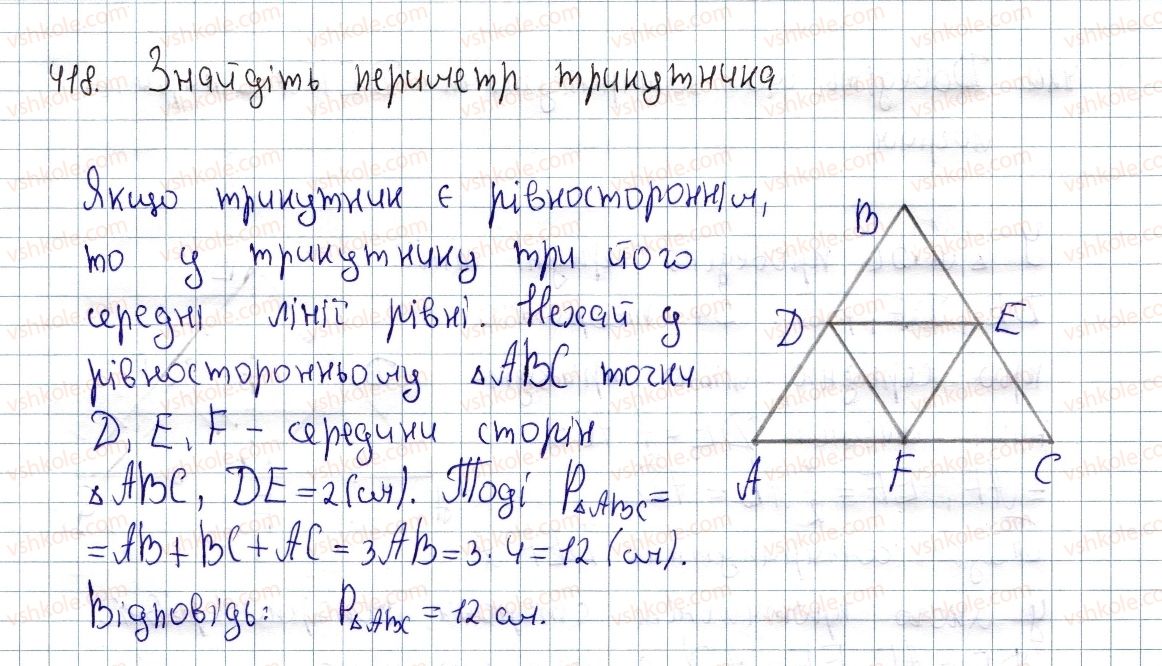 418. Знайдіть периметр трикутника
Якщо трикутник є рівностороннім,
то у трикутнику три його
середні лінії рівні. Нехай у
рівносторонньому △ABC точки
D, E, F – середини сторін
△ABC, DE = 2 (см). Тоді P△ABC =
= AB + BC + AC = 3AB = 3 · 4 = 12 (см).
Відповідь: P△ABC = 12 см.
B
D E
A F C